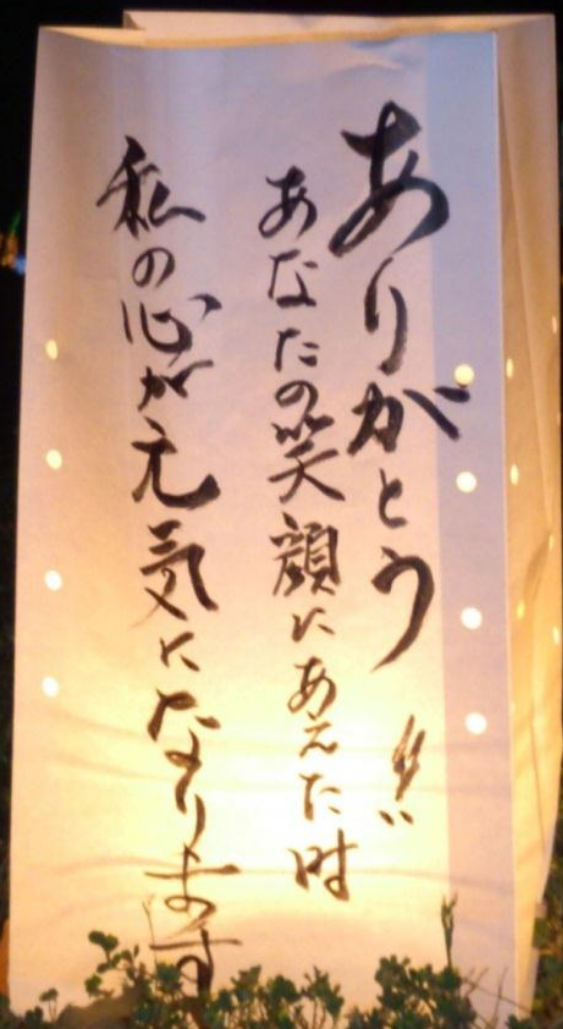 ありがとう!!
あなたの笑顔にあえた時
私の心が元気になります